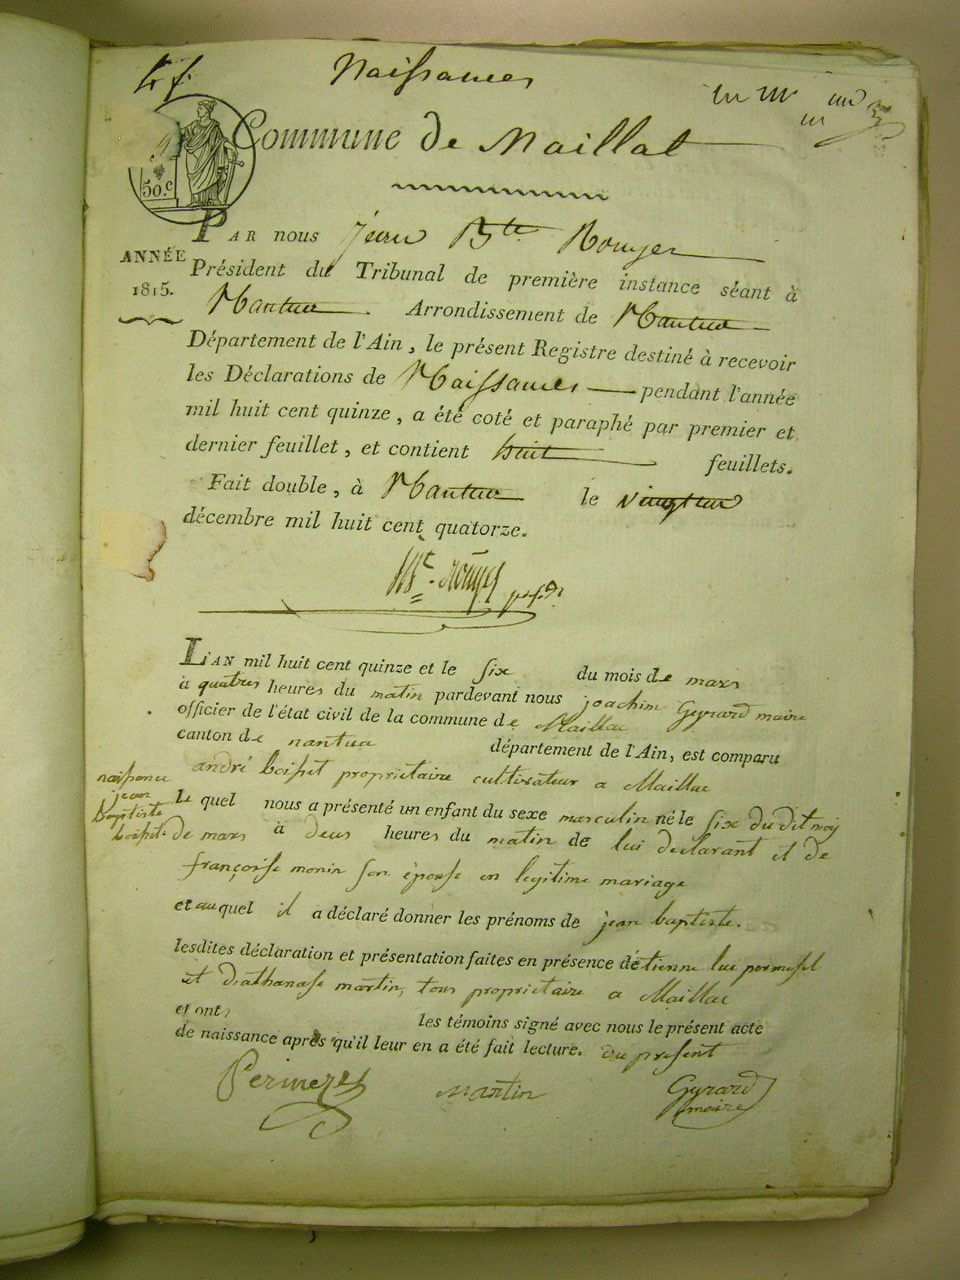 Naissances
Commune de Maillat
50 c.
Par nous jean Bte. Rouyer
ANNÉE
1815.
Président du Tribunal de première instance séant à
Nantua Arrondissement de Nantua
Département de l'Ain, le présent Registre destiné à recevoir
les Déclarations de Naissances pendant l'année
mil huit cent quinze, a été coté et paraphé par premier et
dernier feuillet, et contient huit feuillets.
Fait double, à Nantua le vingt un
décembre mil huit cent quatorze.
Bt. Rouyer
L'AN mil huit cent quinze et le six du mois de mars
à quatres heures du matin pardevant nous joachim Geyrard maire
officier de l'état civil de la commune de Maillac
canton de nantua département de l'Ain, est comparu
andré boisset proprietaire cultivateur a Maillac
naissance
jean
baptiste
boisset
Le quel nous a présenté un enfant du sexe masculin né le six du dit moy
de mars à deux heures du matin de lui declarant et de
françoise monin son épouse en legitime mariage
et auquel il a déclaré donner les prénoms de jean baptiste.
lesdites déclaration et présentation faites en présence détienne luc permesel
et dathanase martin, tous proprietaire a Maillac
et ont les témoins signé avec nous le présent acte
de naissance après qu'il leur en a été fait lecture. du present
Permezel Martin Geyrard
maire